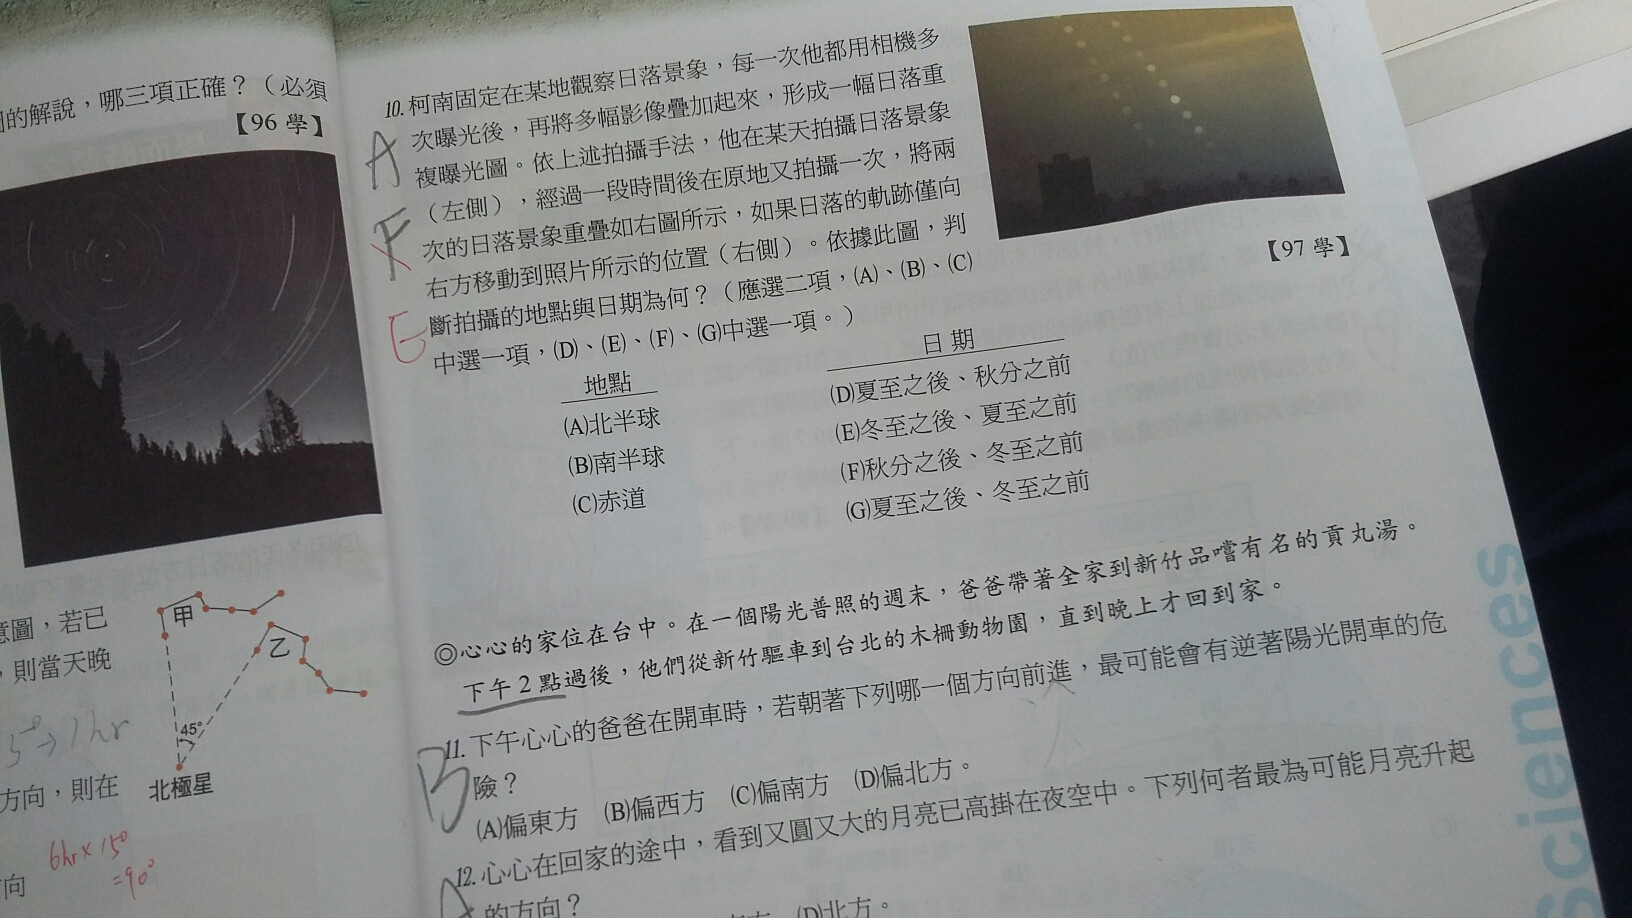 的解說，哪三項正確？（必須
【96 學】
甲
乙
意圖，若已
，則當天晚
5°→1hr
45°
北極星
方向，則在
6hr×15°
=90°
向
10.柯南固定在某地觀察日落景象，每一次他都用相機多
次曝光後，再將多幅影像疊加起來，形成一幅日落重
複曝光圖。依上述拍攝手法，他在某天拍攝日落景象
（左側），經過一段時間後在原地又拍攝一次，將兩
次的日落景象重疊如右圖所示，如果日落的軌跡僅向
右方移動到照片所示的位置（右側）。依據此圖，判
斷拍攝的地點與日期為何？（應選二項，(A)、(B)、(C)
中選一項，(D)、(E)、(F)、(G)中選一項。）
A
F
E
【97 學】
地點
日期
(A)北半球
(D)夏至之後、秋分之前
(B)南半球
(E)冬至之後、夏至之前
(C)赤道
(F)秋分之後、冬至之前
(G)夏至之後、冬至之前
◎心心的家位在台中。在一個陽光普照的週末，爸爸帶著全家到新竹品嚐有名的貢丸湯。
下午2點過後，他們從新竹驅車到台北的木柵動物園，直到晚上才回到家。
B
11.下午心心的爸爸在開車時，若朝著下列哪一個方向前進，最可能會有逆著陽光開車的危
險？
(A)偏東方 (B)偏西方 (C)偏南方 (D)偏北方。
A
12.心心在回家的途中，看到又圓又大的月亮已高掛在夜空中。下列何者最為可能月亮升起
的方向？
(D)北方。
Sciences